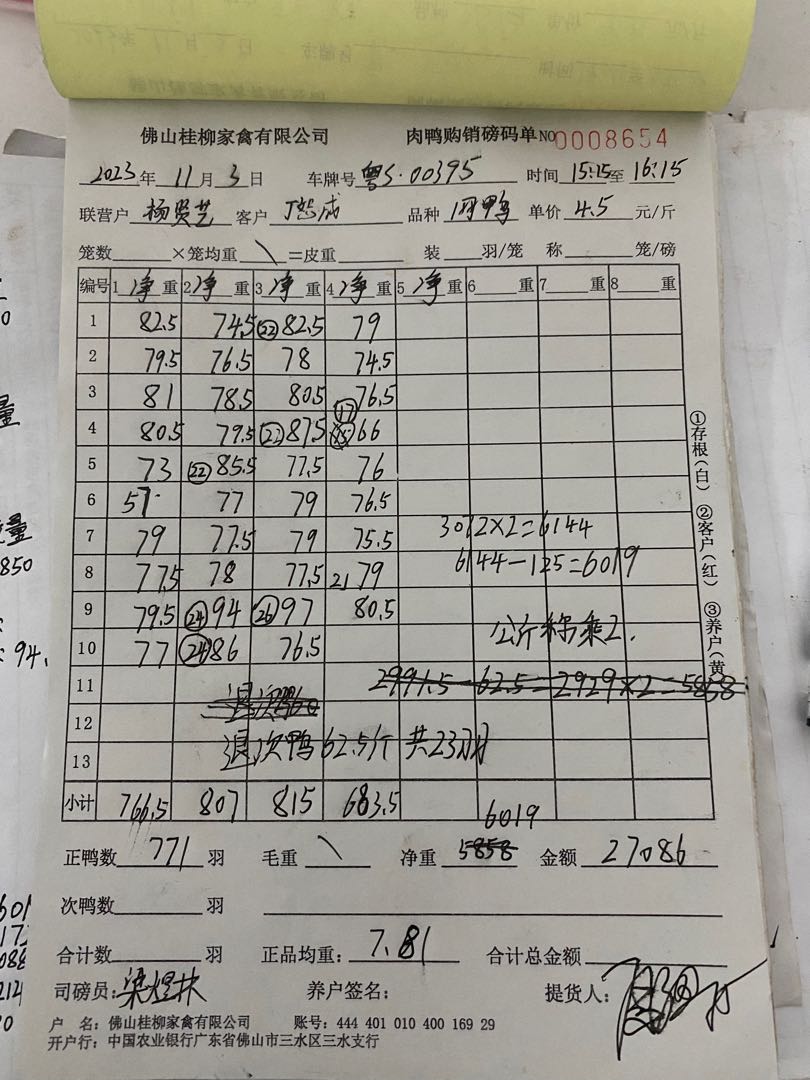 佛山桂柳家禽有限公司 肉鸭购销磅码单 NO 0008654
2023年 11月 3日 车牌号 粤S·00395 时间 15:15至16:15
联营户 杨贤芝 客户 成 品种 鸭 单价 4.5 元/斤
笼数 ×笼均重 \ =皮重 装 羽/笼 称 笼/磅
编号 1 净 重 2 净 重 3 净 重 4 净 重 5 净 重 6 重 7 重 8 重
1 82.5 74.5 (22) 82.5 79
2 79.5 76.5 78 74.5
3 81 78.5 80.5 76.5
4 80.5 79.5 (22) 87.5 (17) 66
5 73 (22) 85.5 77.5 76
6 57 77 79 76.5
7 79 77.5 79 75.5 3072×2=6144
8 77.5 78 77.5 21 79 6144-125=6019
9 79.5 (24) 94 (26) 97 80.5
10 77 (24) 86 76.5 公斤称乘2.
11 2991.5-62.5=2929×2=5858
12
退次鸭62.5斤 共23羽
13
小计 766.5 807 815 683.5
6019
正鸭数 771 羽 毛重 \ 净重 5858 金额 27086
次鸭数 羽
合计数 羽 正品均重: 7.81 合计总金额
司磅员: 梁煜林 养户签名: 提货人:
户 名: 佛山桂柳家禽有限公司 账号: 444 401 010 400 169 29
开户行: 中国农业银行广东省佛山市三水区三水支行
①存根(白) ②客户(红) ③养户(黄
量
量
850
94.